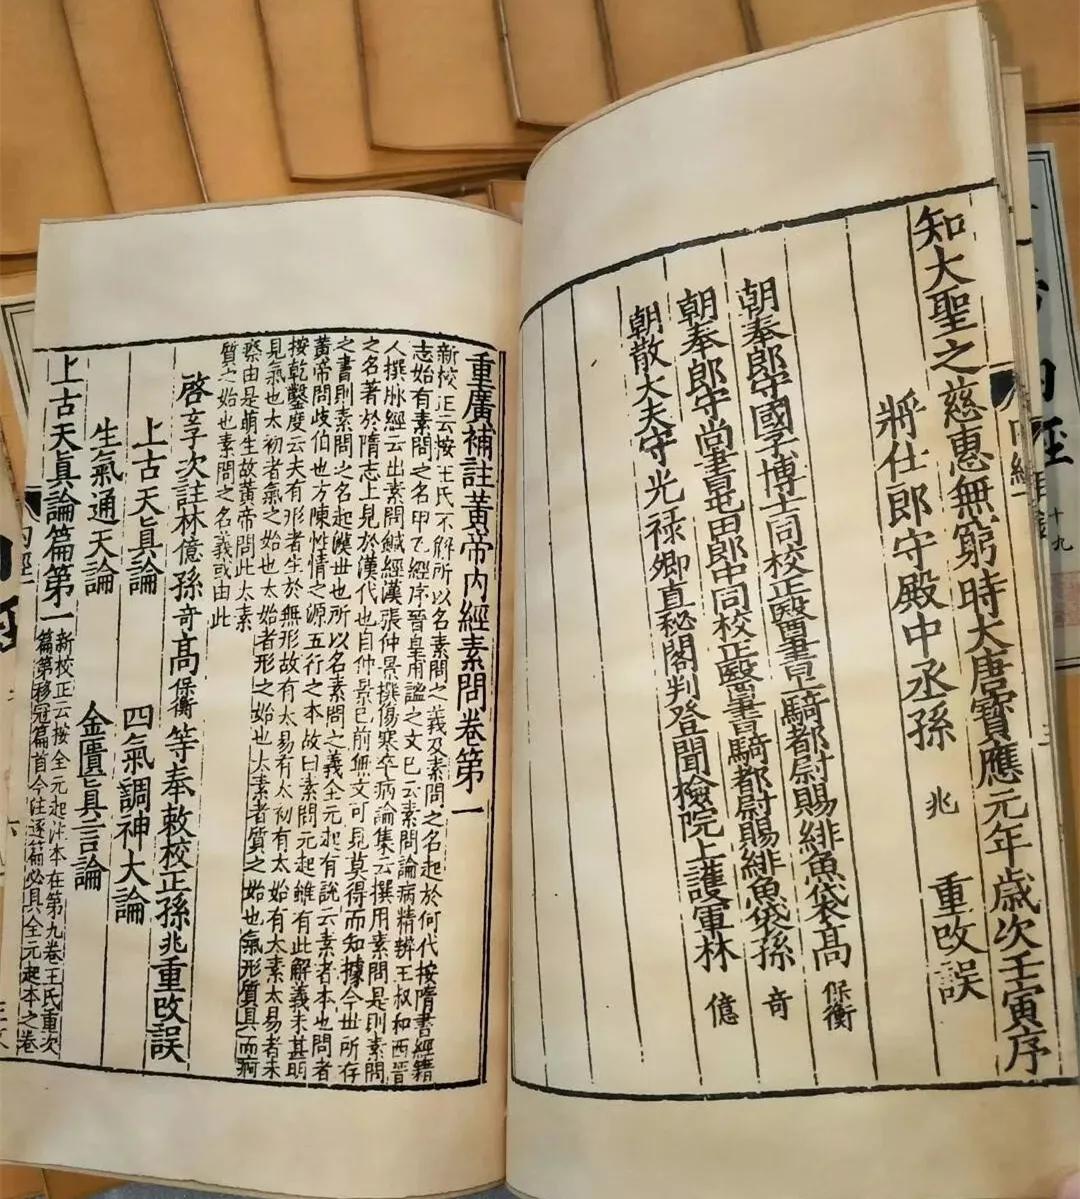 知大聖之慈惠無窮時大唐寶應元年歲次壬寅序
將仕郎守殿中丞孫 兆 重改誤
朝奉郎守國子博士同校正醫書上騎都尉賜緋魚袋高 保衡
朝奉郎守尚書屯田郎中同校正醫書騎都尉賜緋魚袋孫 奇
朝散大夫守光祿卿直秘閣判登聞檢院上護軍林 億
重廣補註黃帝內經素問卷第一
新校正云按王氏不解所以名素問之義及素問之名起於何代按隋書經籍
志始有素問之名甲乙經序晉皇甫謐之文已云素問論病精辨王叔和西晉
人撰脉經云出素問鍼經漢張仲景撰傷寒卒病論集云撰用素問是則素問
之名著於隋志上見於漢代也自仲景已前無文可見莫得而知據今世所存
之書則素問之名起漢世也所以名素問之義全元起有說云素者本也問者
黃帝問歧伯也方陳性情之源五行之本故曰素問元起雖有此解義未甚明
按乾鑿度云夫有形者生於無形故有太易有太初有太始有太素太易者未
見氣也太初者氣之始也太始者形之始也太素者質之始也氣形質具而痾
瘵由是萌生故黃帝問此太素
質之始也素問之名義或由此
啓玄子次註林億孫奇高保衡等奉敕校正孫兆重改誤
上古天眞論 四氣調神大論
生氣通天論 金匱眞言論
上古天眞論篇第一
新校正云按全元起注本在第九卷王氏重次
篇第移冠篇首今注逐篇必具全元起本之卷
內經
十九